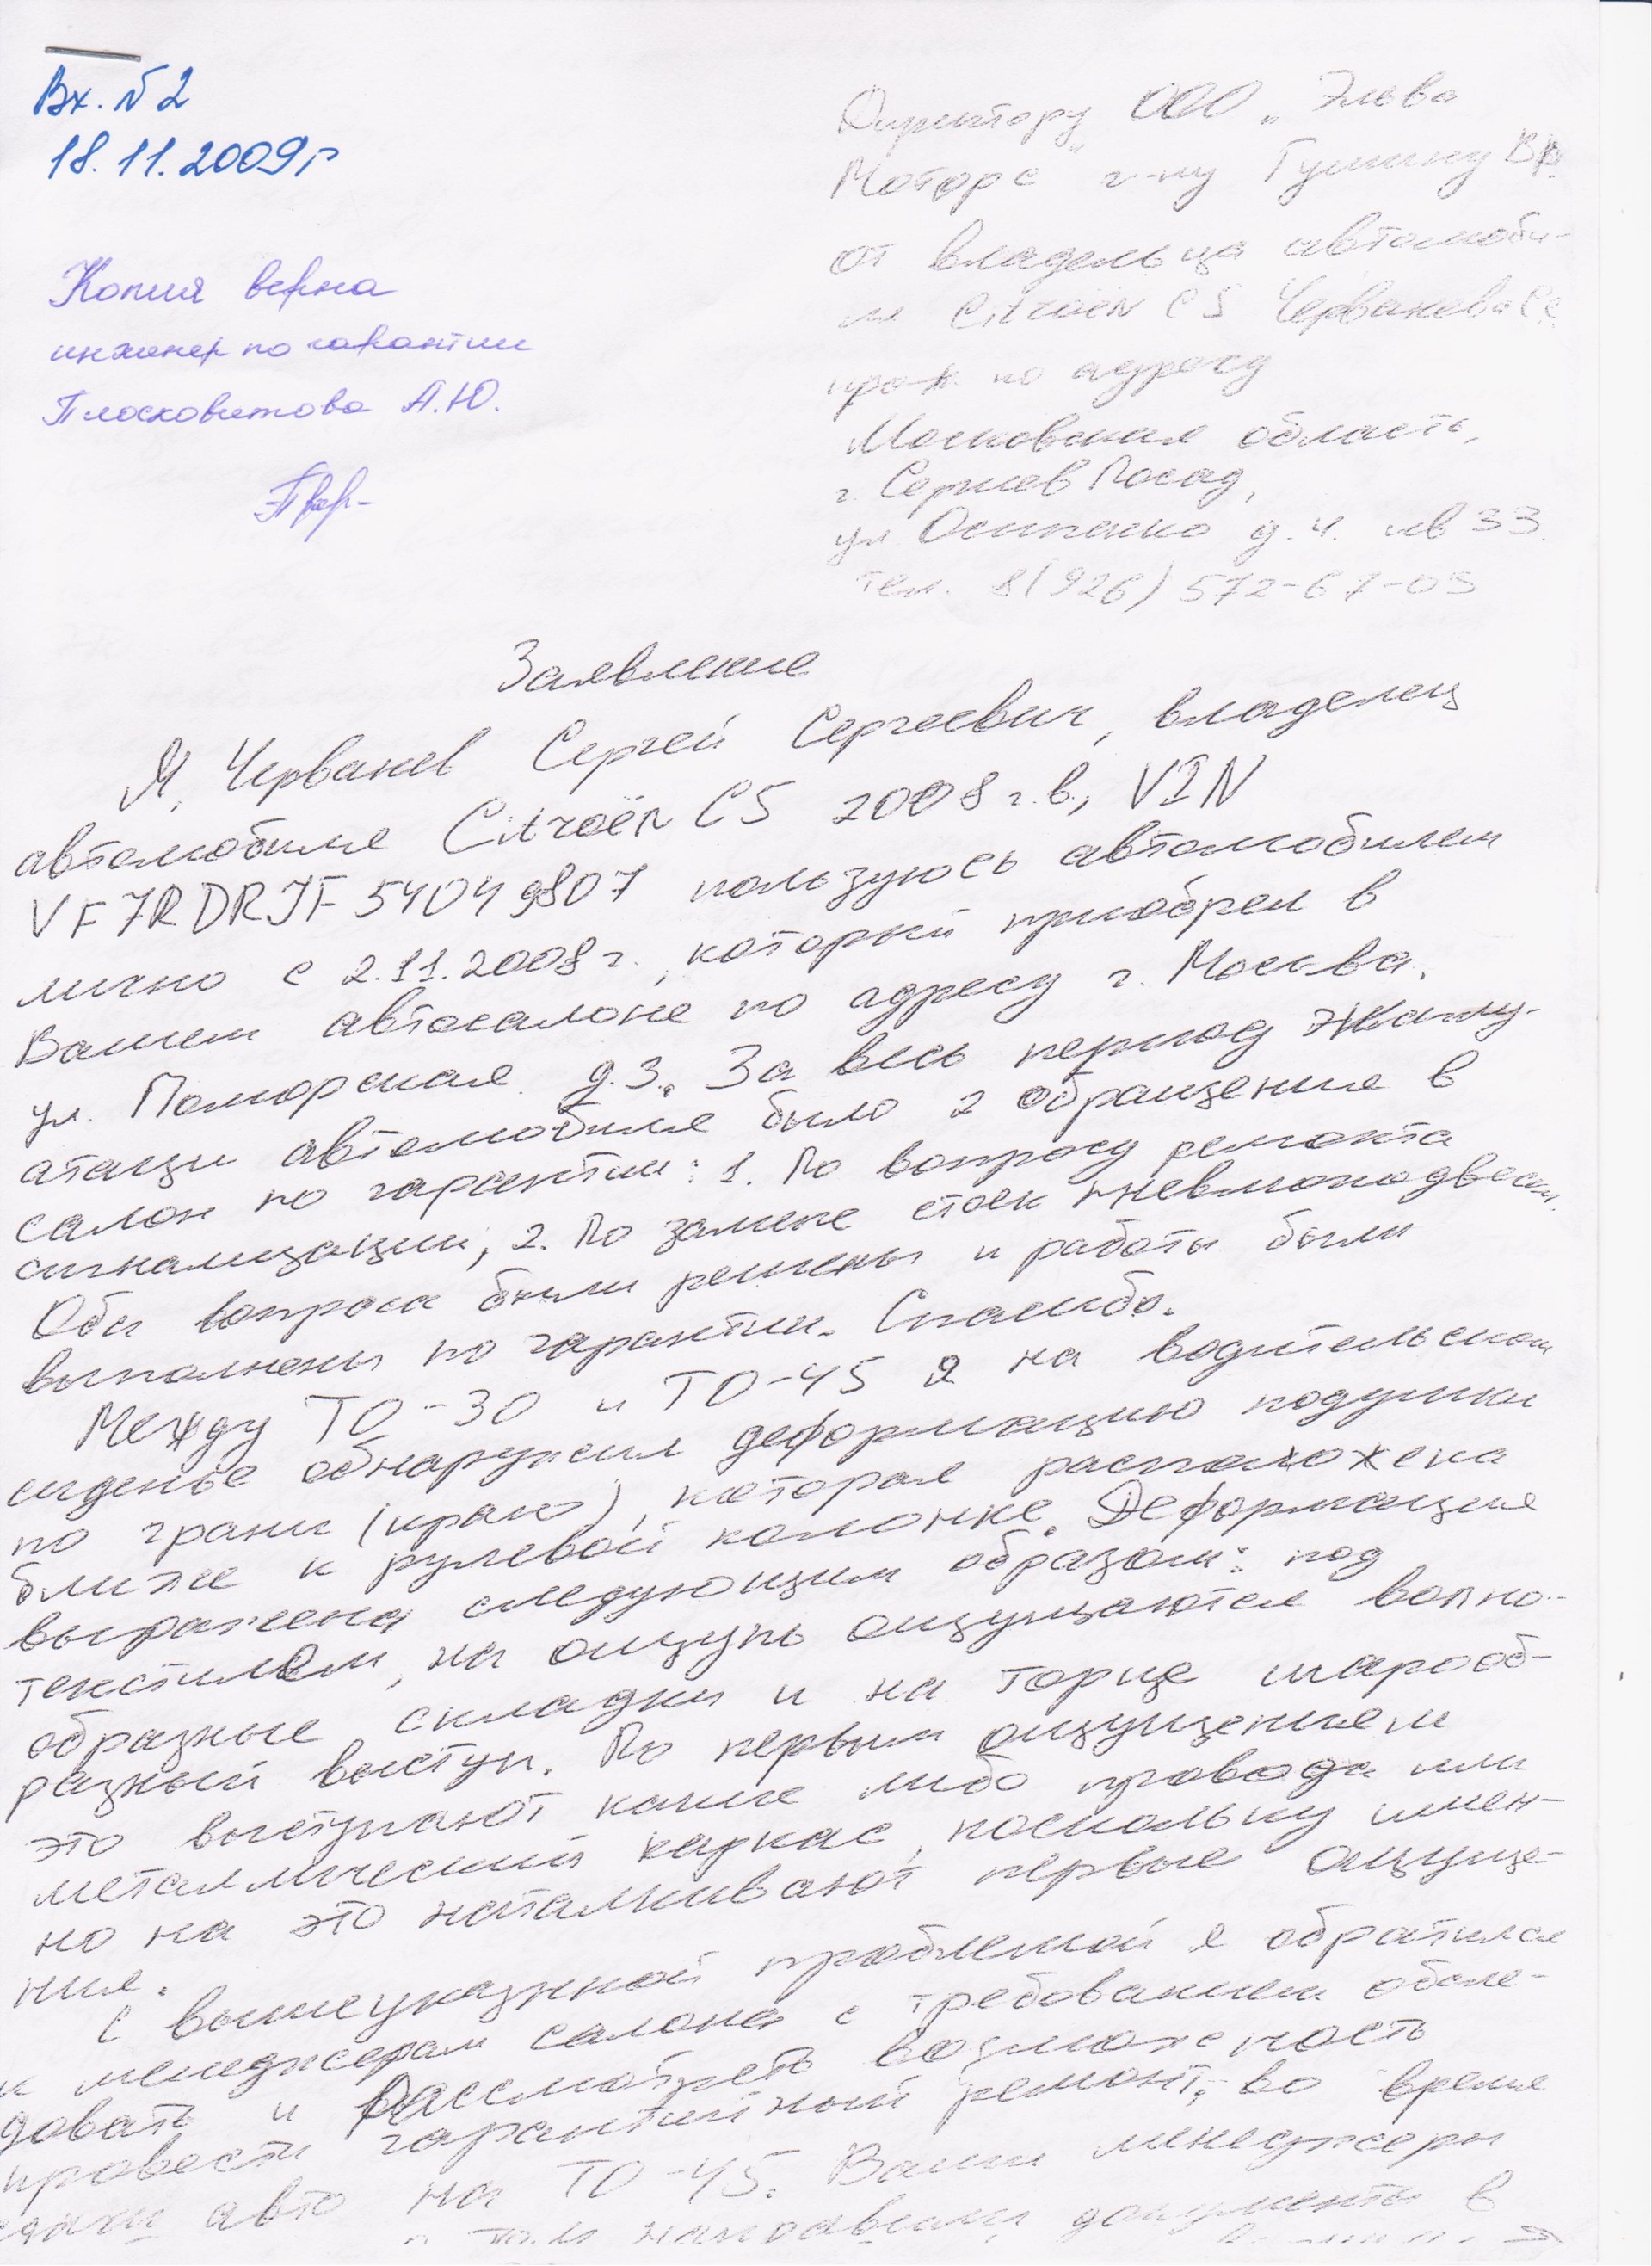 Вх. №2
18.11.2009г
Копия верна
инженер по гарантии
Плосковитова А.Ю.
Директору ООО „Эльва
Моторс" г-ну Гумину
от владельца автомоби-
ля Citroën C5 Черванева СС
прож. по адресу
Московская область,
г. Сергиев Посад,
ул Осипенко д. 4. кв 33.
тел. 8(926) 572-67-05
Заявление
Я, Черванев Сергей Сергеевич, владелец
автомобиля Citroën C5 2008 г.в., VIN
VF7RDRJF54049807 пользуюсь автомобилем
лично с 2.11.2008 г., который приобрел в
Вашем автосалоне по адресу г. Москва,
ул. Поморская д.3. За весь период эксплу-
атации автомобиля было 2 обращения в
салон по гарантии: 1. По вопросу ремонта
сигнализации, 2. По замене стоек пневмоподвески.
Оба вопроса были решены и работы были
выполнены по гарантии. Спасибо.
Между ТО-30 и ТО-45 я на водительском
сиденье обнаружил деформацию подушки
по грани (краю), которая расположена
ближе к рулевой колонке. Деформация
выражена следующим образом: под
текстилем, на ощупь ощущаются волно-
образные складки и на торце шарооб-
разный выступ. По первым ощущением
это выступают какие либо провода или
металлический каркас, поскольку имен-
но на это наталкивают первые ощуще-
ния.
С вышеуказнной проблемой я обратился
к менеджерам салона с требованием обсле-
довать и рассмотреть возможность
провести гарантийный ремонт, во время
сдачи авто на ТО-45. Ваши менеджеры
направили документы в